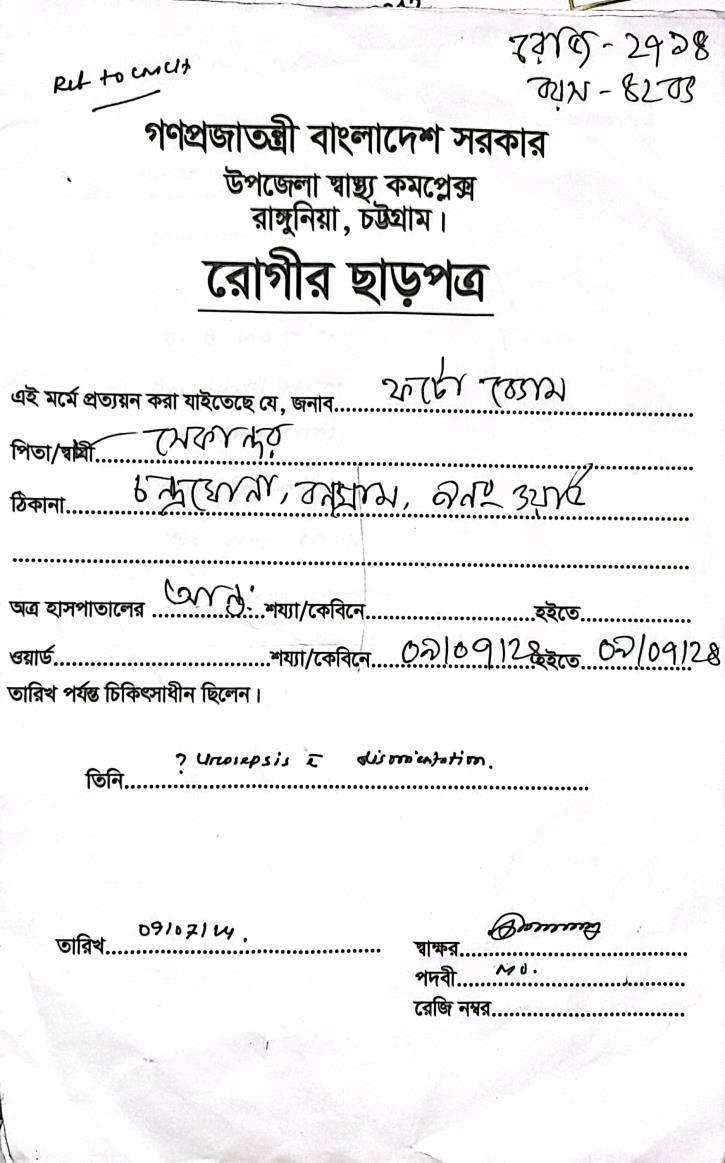 Ref to CMCH
রেজি - ২৭৯৪
বয়স - ৪২ বৎ
গণপ্রজাতন্ত্রী বাংলাদেশ সরকার
উপজেলা স্বাস্থ্য কমপ্লেক্স
রাঙ্গুনিয়া, চট্টগ্রাম।
রোগীর ছাড়পত্র
এই মর্মে প্রত্যয়ন করা যাইতেছে যে, জনাব......
পিতা/স্বামী..... সেকান্দর
ঠিকানা..... চন্দ্রঘোনা, বনগ্রাম, ৯নং ওয়ার্ড
অত্র হাসপাতালের ..... আন্তঃ .....শয্যা/কেবিনে.....হইতে.....
ওয়ার্ড.....শয্যা/কেবিনে..... ০৯/০৭/২৪ হইতে ০৯/০৭/২৪
তারিখ পর্যন্ত চিকিৎসাধীন ছিলেন।
তিনি..... ? Urosepsis c̄ disorientation.
তারিখ..... 09/07/24.
স্বাক্ষর.....
পদবী..... MO.
রেজি নম্বর.....